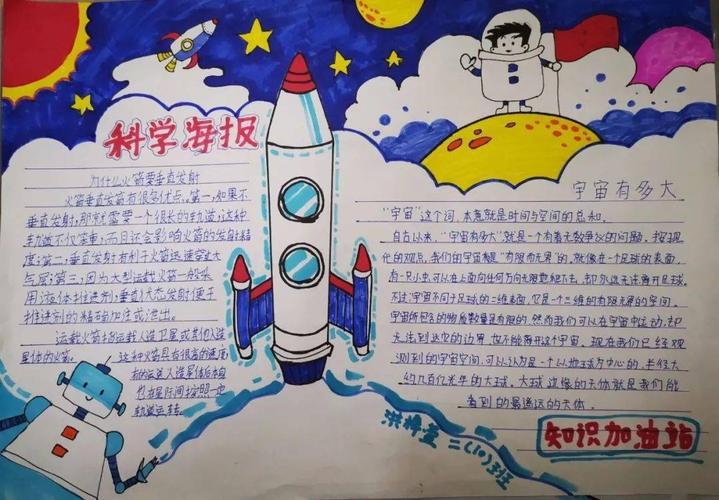 科学海报
为什么火箭要垂直发射
火箭垂直发射有很多优点。第一,如果不
垂直发射,那就需要一个很长的轨道,这种
轨道不仅笨重,而且还会影响火箭的发射精
度;第二,垂直发射有利于火箭迅速穿过大
气层;第三,因为大型运载火箭一般采
用液体推进剂,垂直状态发射便于
推进剂的精确加注或泄出。
运载火箭指运载人造卫星或其他人造
星体的火箭。这种火箭具有很高的速度,
也在星际间按照一定
轨道运转
宇宙有多大
“宇宙”这个词,本意就是时间与空间的总和。
自古以来,“宇宙有多大”就是一个有着无数争议的问题。按现
代的观点,我们的宇宙是“有限而无界”的,就像在一个足球的表面,
有一只小虫可以在上面向任何方向无限爬下去,却永远无法离开足球。
不过宇宙不同于足球的二维表面,它是一个三维的有限无界的空间。
宇宙所包含的物质数量是有限的,然而我们可以在宇宙中运动,却
无法到达它的边界,也不能离开这个宇宙。现在我们已经观
测到的宇宙空间,可以认为是一个以地球为中心的,半径大
约几百亿光年的大球。大球边缘的天体就是我们能
看到的最遥远的天体。
知识加油站
二(10)班